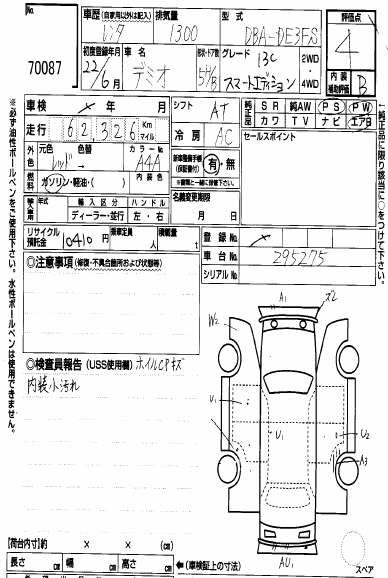 No.
70087
車歴 (自家用以外は記入) レンタ
排気量 1300
型式 DBA-DE3FS
評価点 4
内装補助評価 B
初度登録年月 22/6月
車名 デミオ
形状・ドア数 5H/B
グレード 13C スマートエディション
2WD・4WD
車検 × 年 月
シフト AT
純正品 SR 純AW PS PW
カワ TV ナビ エアB
走行 62326 Km マイル
冷房 AC
セールスポイント
外色 元色 レッド→ 色替 カラーNo. A4A
燃料 ガソリン・軽油・( ) 内装色
新車整備手帳(保証書付) 有・無
輸入車 年式 輸入区分 ハンドル
ディーラー・並行 左・右
名義変更期限 月 日
リサイクル預託金 10410円
乗車定員 人
積載量 t
登録No. ×
車台No. 295275
シリアルNo.
◎注意事項 (修復・不具合箇所および状態等)
◎検査員報告 (USS使用欄) ホイルCPキズ
内装小汚れ
A1
ズ2
W2
U1
U1
U2
A3
AU1
スペア
[荷台内寸]約 × × (cm)
長さ cm 幅 cm 高さ cm
(車検証上の寸法)
※必ず油性ボールペンをご使用下さい。水性ボールペンは使用できません。
(純正品に限り該当に○をつけて下さい。)